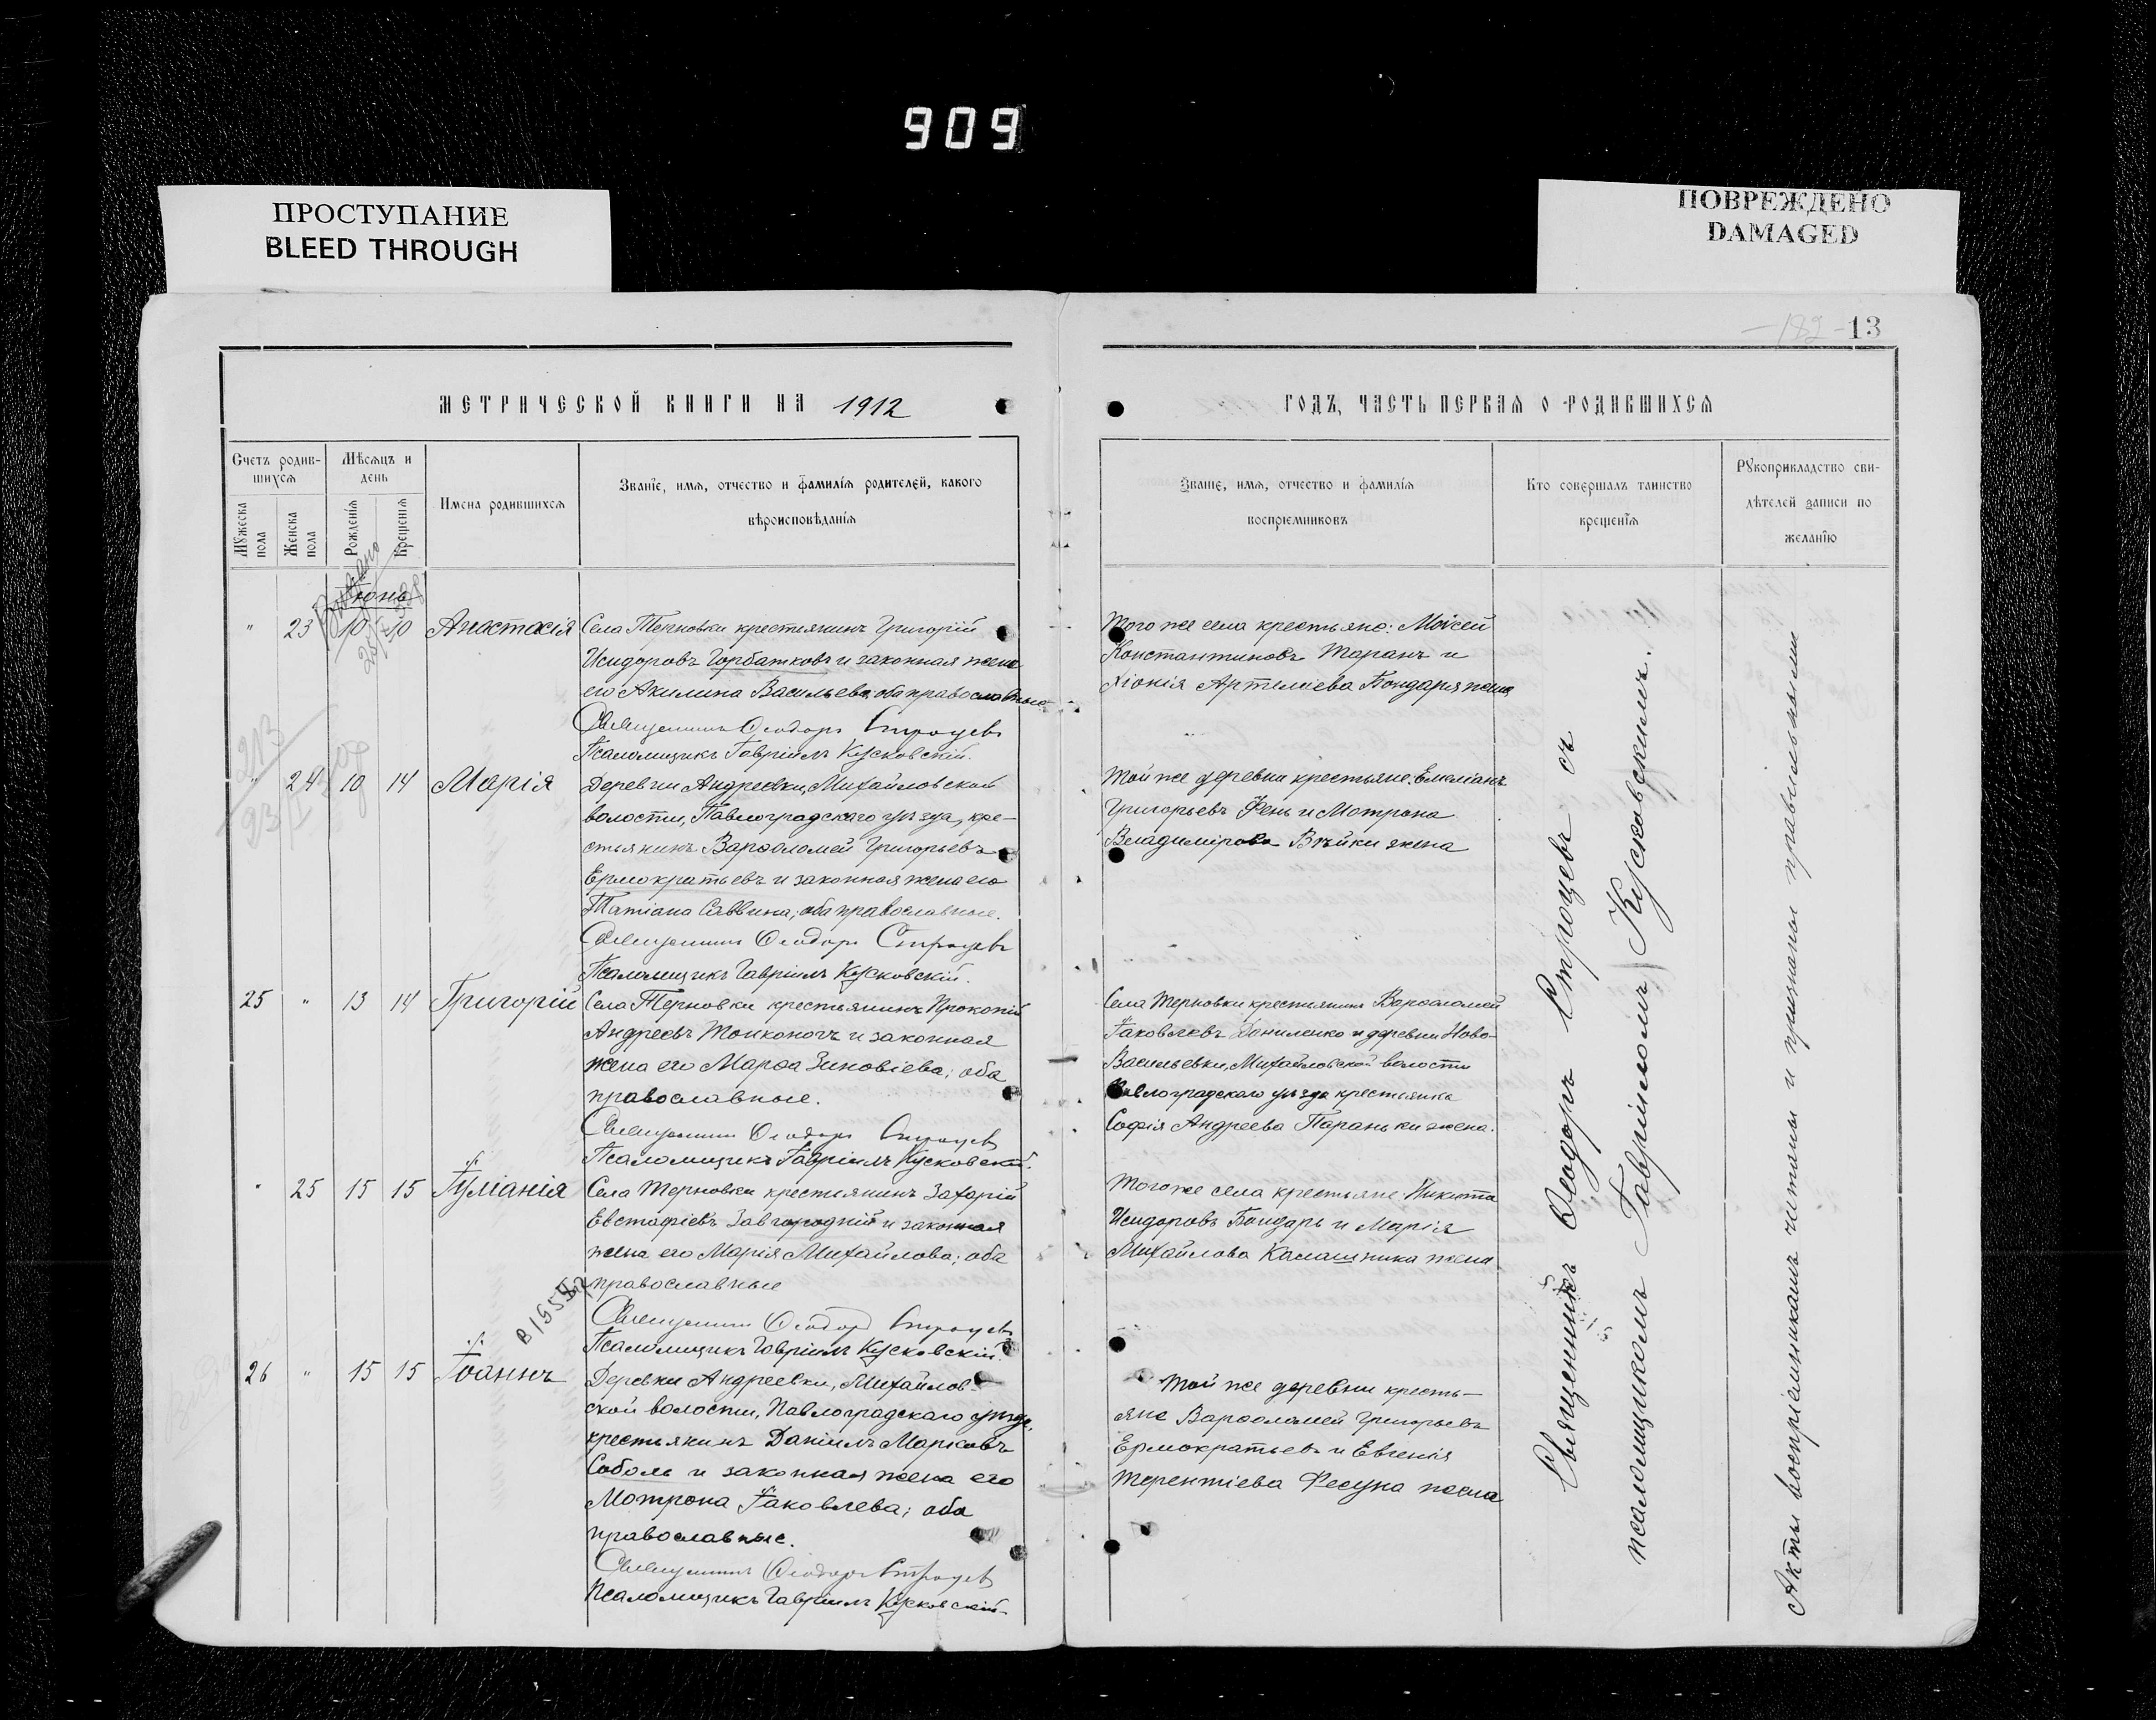 909
ПРОСТУПАНИЕ
BLEED THROUGH
ПОВРЕЖДЕНО
DAMAGED
МЕТРИЧЕСКОЙ КНИГИ НА 1912
Счетъ родив-
шихся
Мужеска пола
Женска пола
Мѣсяцъ и
день
Рожденія
Крещенія
Имена родившихся
Званіе, имя, отчество и фамилія родителей, какого
вѣроисповѣданія
Іюнь
" 23 10 10 Анастасія
Села Терновки крестьянинъ Григорій
Исидоровъ Горбатковъ и законная жена
его Акилина Васильева; оба православные
Священникъ Ѳеодоръ Строцевъ
Псаломщикъ Гавріилъ Кусковскій.
213
" 24 10 14 Марія
Деревни Андреевки, Михайловской
волости, Павлоградскаго уѣзда, кре-
стьянинъ Варѳоломей Григорьевъ
Ермократьевъ и законная жена его
Татіана Саввина; оба православные.
Священникъ Ѳеодоръ Строцевъ
Псаломщикъ Гавріилъ Кусковскій.
25 " 13 14 Григорій
Села Терновки крестьянинъ Прокопій
Андреевъ и законная
жена его Марѳа Зиновіева; оба
православные.
Священникъ Ѳеодоръ Строцевъ
Псаломщикъ Гавріилъ Кусковскій.
" 25 15 15 Іуліанія
Села Терновки крестьянинъ Захарій
Евстафіевъ Завгородній и законная
жена его Марія Михайлова; оба
православные
Священникъ Ѳеодоръ Строцевъ
Псаломщикъ Гавріилъ Кусковскій.
26 " 15 15 Іоаннъ
Деревни Андреевки, Михайлов-
ской волости, Павлоградскаго уѣзда,
крестьянинъ Даніилъ Марковъ
Соболь и законная жена его
Мотрона Іаковлева; оба
православные.
Священникъ Ѳеодоръ Строцевъ
Псаломщикъ Гавріилъ Кусковскій.
182 13
ГОДЪ, ЧАСТЬ ПЕРВАЯ О РОДИВШИХСЯ
Званіе, имя, отчество и фамилія
воспріемниковъ
Кто совершалъ таинство
крещенія
Рукоприкладство сви-
дѣтелей записи по
желанію
Того же села крестьяне: Моисей
Константиновъ Таранъ и
Хіонія Артеміева Бондаря жена
Той же деревни крестьяне: Емеліанъ
Григорьевъ Фень и Мотрона
Владимірова жена
Села Терновки крестьянинъ Варѳоломей
Іаковлевъ Даниленко и деревни Ново-
Васильевки, Михайловской волости
Павлоградскаго уѣзда крестьянка
Софія Андреева Параньки жена.
Того же села крестьяне: Никита
Исидоровъ Бондарь и Марія
Михайлова Калашника жена
Той же деревни кресть-
яне Варѳоломей Григорьевъ
Ермократьевъ и Евгенія
Терентіева Фесуна жена
Священникъ Ѳеодоръ Строцевъ съ
псаломщикомъ Гавріиломъ Кусковскимъ.
Акты воспріемникамъ читаны и признаны правильными